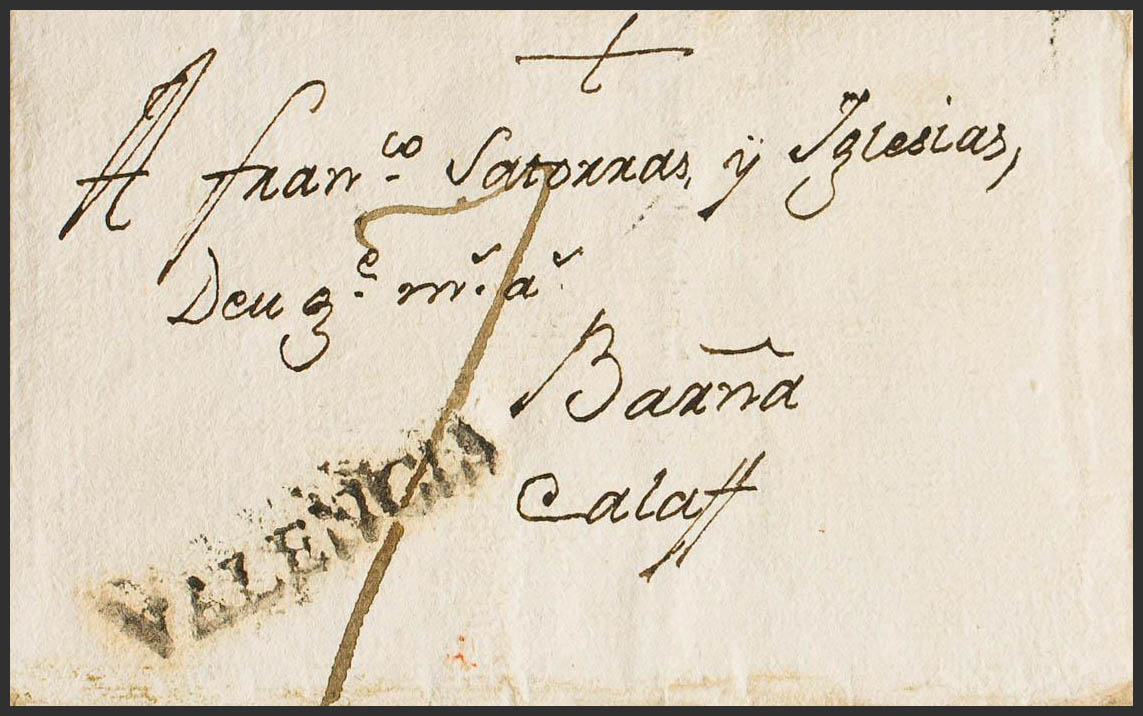 A Fran.co Satorras, y Iglesias,
Deu g.e m.s a.s
Barña
Calaff
VALENCIA
7